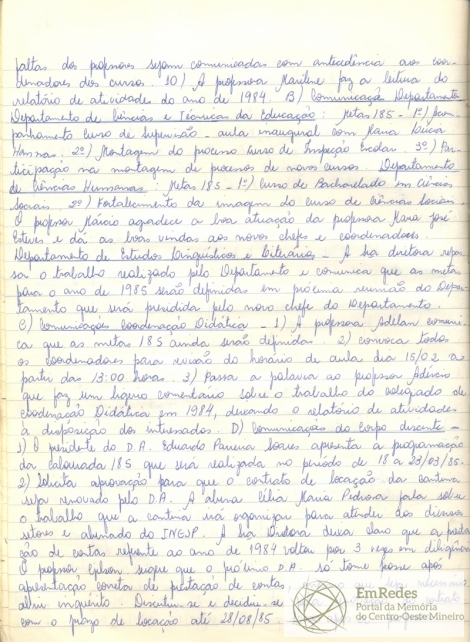 faltas dos professores sejam comunicadas com antecedência aos coor-
denadores dos cursos. 10) A professora Marilene faz a leitura do
relatório de atividades do ano de 1984. B) Comunicação Departamento
Departamento de Ciências e Técnicas da Educação: Metas 185 - 1º) Acom-
panhamento Curso de Supervisão - aula inaugural com Maria
Hannas - 2º) Montagem do processo Curso de Inspeção Escolar. 3º) Par-
ticipação na montagem de processos de novos cursos. Departamento
de Ciências Humanas: Metas 185 - 1º) Curso de Bacharelado em Ciências
Sociais. 2º) Fortalecimento da imagem do curso de Ciências Sociais.
O professor Márcio agradece a boa atuação da professora Maria José
Esteves e dá as boas vindas aos novos chefes e coordenadores.
Departamento de Estudos Linguísticos e Literários - A Sra diretora
o trabalho realizado pelo Departamento e comunica que as metas
para o ano de 1985 serão definidas em próxima reunião do Depar-
tamento que será presidida pelo novo chefe do Departamento.
C) Comunicações Coordenação Didática - 1) A professora Adélan comuni-
ca que as metas 185 ainda serão definidas. 2) convoca todos
os coordenadores para revisão do horário de aula dia 15/02 a
partir das 13:00 horas. 3) Passa a palavra ao professor
que faz um ligeiro comentário sobre o trabalho do colegiado de
Coordenação Didática em 1984, deixando o relatório de atividades
à disposição dos interessados. D) Comunicação do Corpo discente -
1) O presidente do D.A. Eduardo Soares apresenta a programação
da calourada 185 que será realizada no período de 18 a 23/03/85.
2) Solicita aprovação para que o contrato de locação da cantina
seja renovado pelo D.A. A aluna Célia Maria Pedrosa fala sobre
o trabalho que a cantina irá organizar para atender aos diversos
setores e alunado do INESP. A Sra Diretora deixa claro que a presta-
ção de contas referente ao ano de 1984 voltou por 3 vezes em diligência
O professor Gilson sugere que o próximo D.A. só tome posse após
apresentação correta de prestação de contas,
abrir inquérito. Discutiu-se e decidiu-se
com o prazo de locação até 28/08/85
EmRedes
Portal da Memória
do Centro-Oeste Mineiro